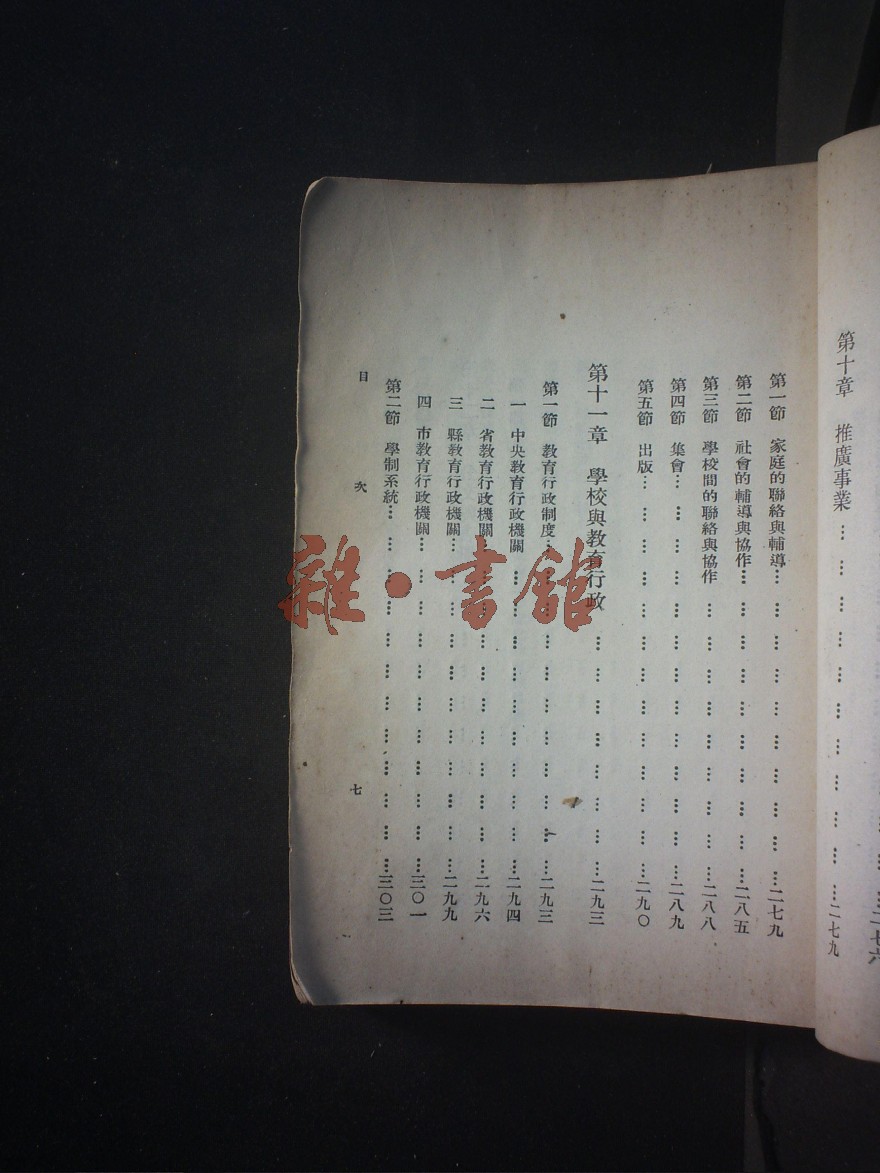 二七六
第十章　推廣事業……………………………二七九
第一節　家庭的聯絡與輔導……………………………二七九
第二節　社會的輔導與協作……………………………二八五
第三節　學校間的聯絡與協作……………………………二八八
第四節　集會……………………………二八九
第五節　出版……………………………二九〇
第十一章　學校與教育行政……………………………二九三
第一節　教育行政制度……………………………二九三
一　中央教育行政機關……………………………二九四
二　省教育行政機關……………………………二九六
三　縣教育行政機關……………………………二九九
四　市教育行政機關……………………………三〇一
第二節　學制系統……………………………三〇三
目次　七
雜·書館